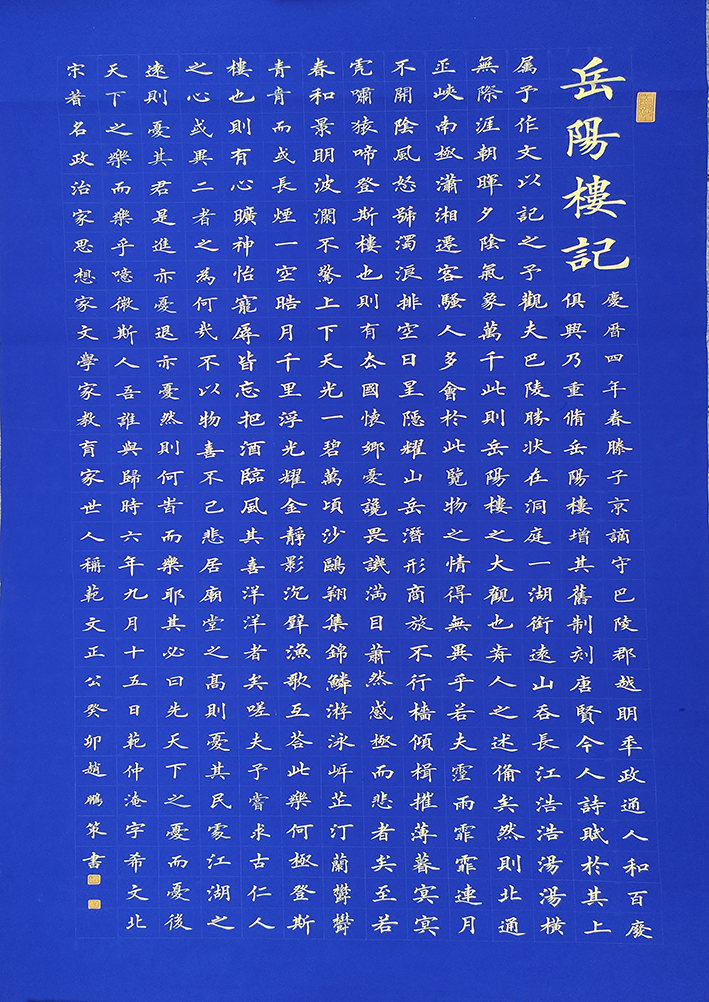 岳陽樓記
慶曆四年春滕子京謫守巴陵郡越明秊政通人和百廢
俱興乃重脩岳陽樓增其舊制刻唐賢今人詩賦於其上
属予作文以記之予觀夫巴陵勝状在洞庭一湖銜遠山吞長江浩浩湯湯橫
無際涯朝暉夕陰氣象萬千此則岳陽樓之大觀也前人之述備矣然則北通
巫峽南極瀟湘遷客騷人多會於此覽物之情得無異乎若夫霪雨霏霏連月
不開陰風怒號濁浪排空日星隱耀山岳潛形商旅不行檣傾楫摧薄暮冥冥
虎嘯猿啼登斯樓也則有去國懷鄉憂讒畏譏滿目蕭然感極而悲者矣至若
春和景明波瀾不驚上下天光一碧萬頃沙鷗翔集錦鱗游泳岸芷汀蘭鬱鬱
青青而或長煙一空皓月千里浮光耀金靜影沉璧漁歌互答此樂何極登斯
樓也則有心曠神怡寵辱皆忘把酒臨風其喜洋洋者矣嗟夫予嘗求古仁人
之心或異二者之為何哉不以物喜不己悲居廟堂之高則憂其民處江湖之
遠則憂其君是進亦憂退亦憂然則何時而樂耶其必曰先天下之憂而憂後
天下之樂而樂乎噫微斯人吾誰與歸時六年九月十五日範仲淹字希文北
宋著名政治家思想家文學家教育家世人稱範文正公癸卯趙鵬策書